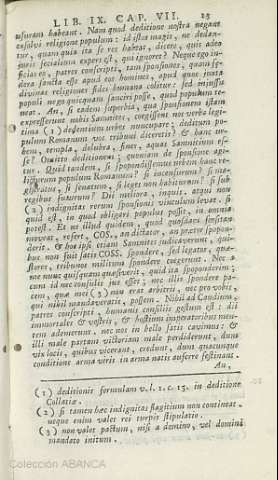 LIB. IX. CAP. VII. 25
usuram habeant. Nam quod deditione nostra negant
exsolvi religione populum: id istos magis, ne dedan-
tur, quam quia ita se res habeat, dicere, quis adeo
juris fecialium expers est, qui ignoret? Neque ego in-
ficias eo, patres conscripti, tam sponsiones, quam fœ-
dera sancta esse apud eos homines, apud quos juxta
divinas religiones fides humana colitur: sed injussu
populi nego quicquam sanciri posse, quod populum te-
neat. An, si eadem superbia, qua sponsionem istam
expresserunt nobis Samnites, coegissent nos verba legi-
tima (1) dedentium urbes nuncupare; deditum po-
pulum Romanum vos tribuni diceretis? & hanc ur-
bem, templa, delubra, fines, aquas Samnitium es-
se? Omitto deditionem; quoniam de sponsione agi-
tur. Quid tandem, si spopondissemus urbem hanc re-
licturum populum Romanum? si incensurum? si ma-
gistratus, si senatum, si leges non habiturum? si sub
regibus futurum? Dii meliora, inquit. atqui non
(2) indignitas rerum sponsionis vinculum levat. si
quid est, in quod obligari populus possit, in omnia
potest. Et ne illud quidem, quod quosdam forsitan
moveat, refert, COS. an dictator, an prætor spopon-
derit. & hoc ipsi etiam Samnites judicaverunt, qui-
bus non fuit satis COSS. spondere, sed legatos, quæ-
stores, tribunos militum spondere coegerunt. Nec a
me nunc quisquam quæsiverit, quid ita spoponderim;
cum id nec consulis jus esset; nec illis spondere pa-
cem, quæ mei (3) non erat arbitrii, nec pro vobis,
qui nihil mandaveratis, possem. Nihil ad Caudium,
patres conscripti, humanis consiliis gestum est: dii
immortales & vestris, & hostium imperatoribus men-
tem ademerunt. nec nos in bello satis cavimus: &
illi male partam victoriam male perdiderunt, dum
vix locis, quibus vicerant, credunt, dum quacumque
conditione arma viris in arma natis auferre festinant.
An,
(1) deditionis formulam v. l. 1. c. 15. in deditione
Collatiæ.
(2) si tamen hæc indignitas flagitium non contineat.
neque enim valet rei turpis stipulatio.
(3) non valet pactum, nisi a domino, vel domini
mandato initum.
Colección ABANCA